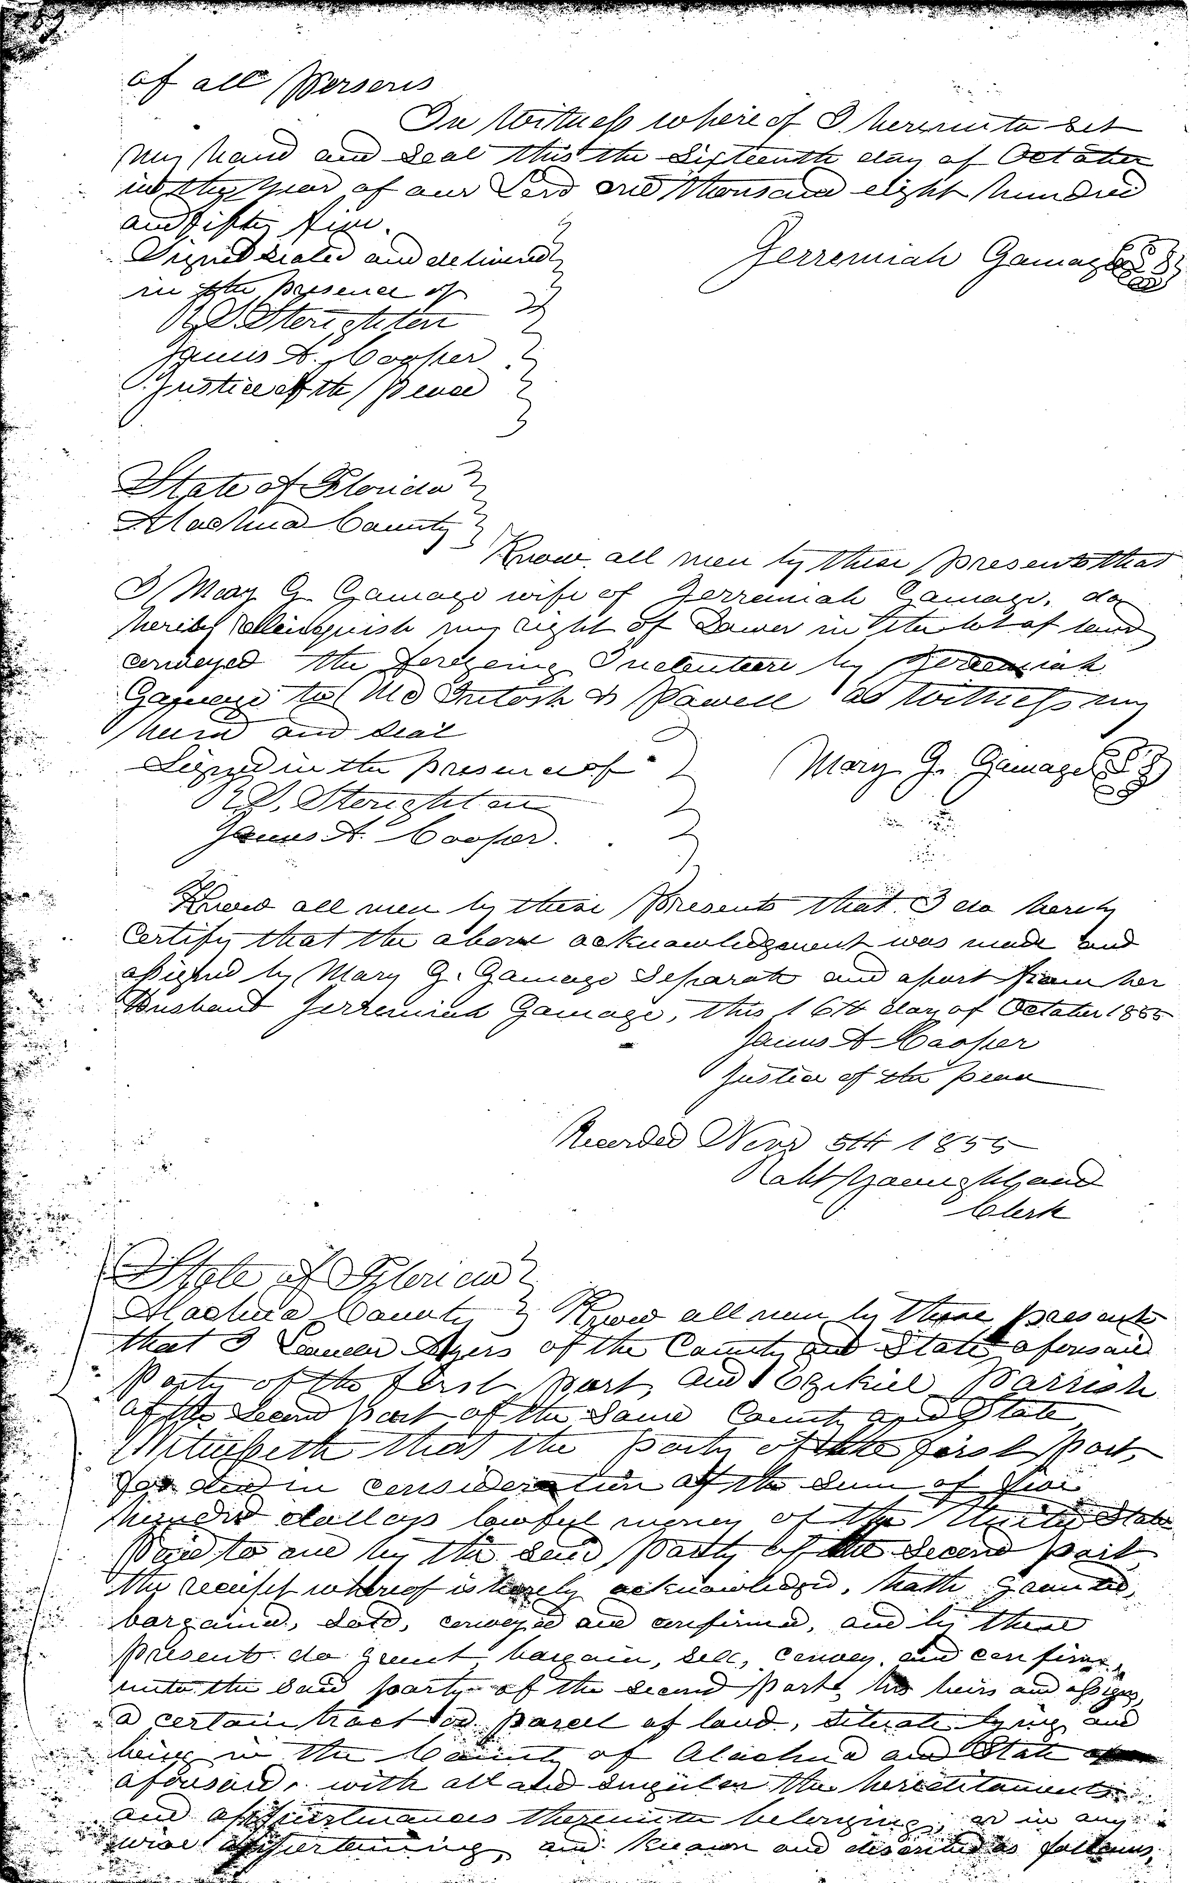 of all persons
In Witness where of I hereunto set
my hand and seal this the Sixteenth day of October
in the year of our Lord one thousand eight hundred
and fifty five.
Signed sealed and delivered
in the presence of
Jerremiah Gamage L S
R. S. Stoughton
James A. Cooper
Justice of the peace
State of Florida
Alachua County
Know all men by these presents that
I Mary G. Gamage wife of Jerremiah Gamage, do
hereby relinquish my right of Dower in the lot of land
conveyed the foregoing Indenture by Jeremiah
Gamage to McIntosh & Powell as Witness my
hand and seal
Signed in the presence of
Mary G. Gamage L S
R. S. Stoughton
James A. Cooper.
Know all men by these presents that I do hereby
Certify that the above acknowledgement was made and
assigned by Mary G. Gamage Separate and apart from her
Husband Jerremiah Gamage, this 16th day of October 1855
James A Cooper
Justice of the peace
Recorded Novr 5th 1855
Robt Youngblood
Clerk
State of Florida
Alachua County Know all men by these presents
that I Ayers of the County and State aforesaid
Party of the first part, and Ezekiel Parrish
of the Second part of the Same County and State,
Witnesseth that the party of the first part,
for and in consideration of the sum of five
hundred dollars lawful money of the United States
paid to me by the said party of the second part
the receipt whereof is hereby acknowledged, hath granted,
bargained, sold, conveyed and confirmed, and by these
presents do grant bargain, sell, convey, and confirm,
unto the said party of the second part, his heirs and assigns,
a certain tract or parcel of land, situate lying and
being in the County of Alachua and State
aforesaid, with all and singular the hereditaments
and appurtenances thereunto belonging, or in any
wise appertaining, and known and described as follows,